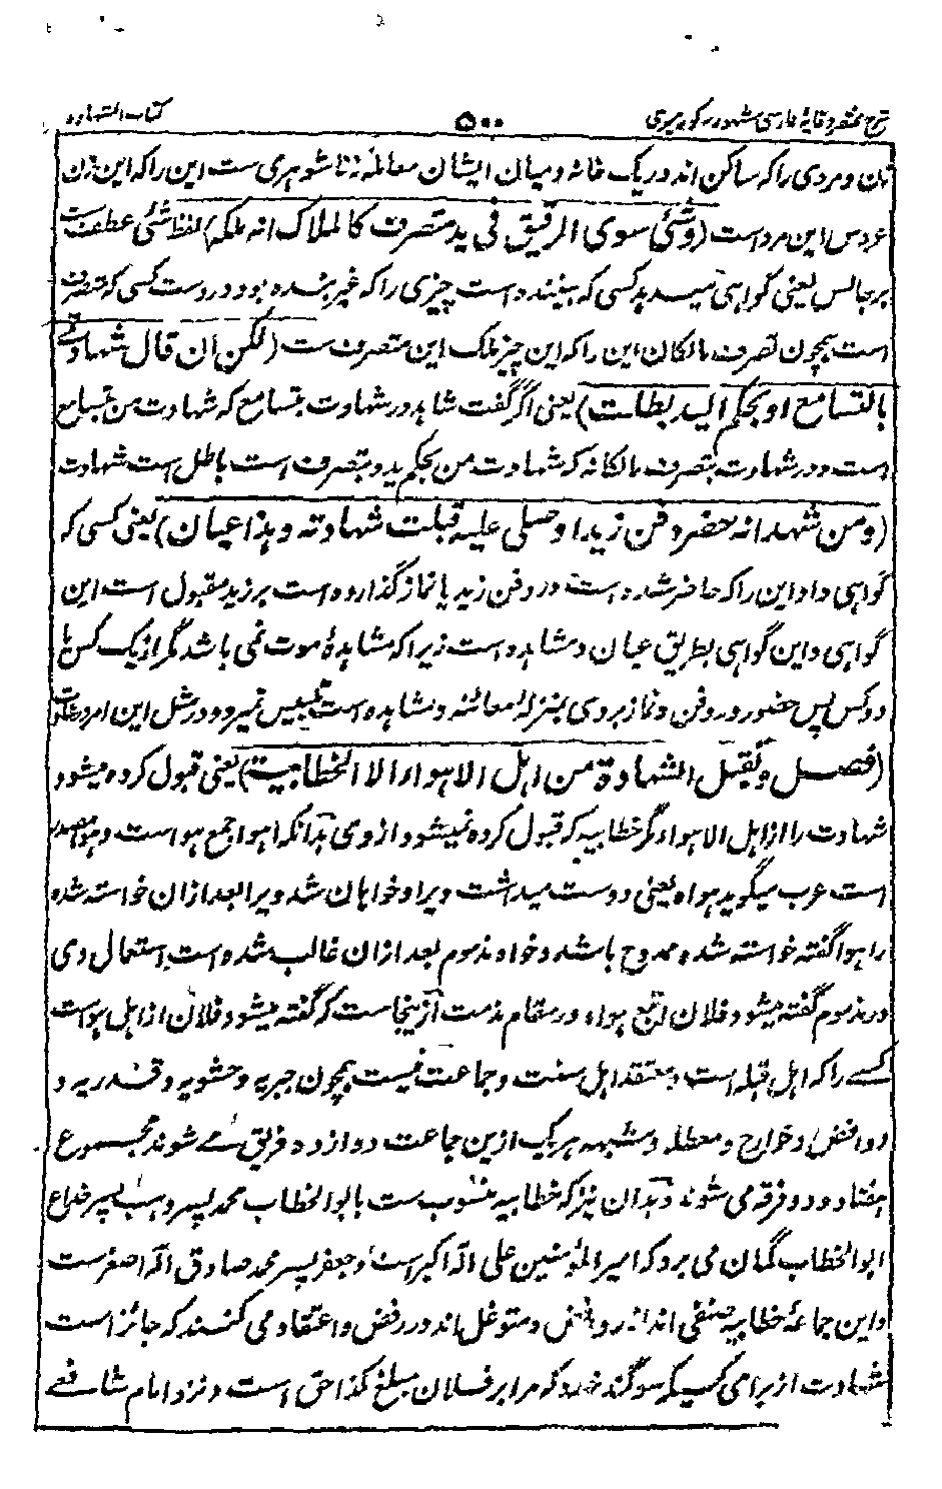 شرح مختصر وقایه فارسی مشهور به کویریری ۵۰۰ کتاب الشهادة
زن و مردی را که ساکن اند در یک خانه و میان ایشان معامله زنا شوهری ست این را که این زن
عروس این مرد است (وشئ سوی الرقیق فی ید متصرف کالملاک انه ملکه) لفظ شئ عطف ست
بر جالس یعنی گواهی میدهد کسی که بیننده است چیزی را که غیر بنده بود در دست کسی که متصرف
است همچون تصرف مالکان این را که این چیز ملک این متصرف ست (لکن ان قال شهادتی
بالتسامع او بحکم الید بطلت) یعنی اگر گفت شاهد در شهادت بتسامع که شهادت من بتسامع
است و در شهادت بتصرف مالکانه که شهادت من بحکم ید و بتصرف است باطل است شهادت
(ومن شهد انه حضر دفن زید او صلی علیه قبلت شهادته وهذا عیان) یعنی کسی که
گواهی داد این را که حاضر شده است در دفن زید یا نماز گذارده است بر زید مقبول است این
گواهی و این گواهی بطریق عیان و مشاهده است زیرا که مشاهدهٔ موت نمی باشد مگر از یک کس یا
دو کس پس حضور در دفن و نماز بر وی بمنزلهٔ معائنه و مشاهده است تلبیس نمیرود در مثل این امر
(فصل و تقبل الشهادة من اهل الاهواء الا الخطابیة) یعنی قبول کرده میشود
شهادت را از اهل الاهواء مگر خطابیه که قبول کرده نمیشود از وی بدانکه اهوا جمع هوا است و هوا مصدر
است عرب میگوید هواه یعنی دوست میداشت ویرا و خواهان شد ویرا بعد ازان خواسته شده
را هوا گفته خواسته شده ممدوح باشد و خواه مذموم بعد ازان غالب شده است استعمال وی
در مذموم گفته میشود فلان اتبع هواه در مقام مذمت ازینجاست که گفته میشود فلان از اهل هواست
کسے را که اهل قبله است و معتقد اهل سنت و جماعت نیست همچون جبریه و حشویه و قدریه و
روافض و خوارج و معطله و مشبهه هر یک ازین جماعت دوازده فریق مے شوند مجموع
هفتاد و دو فرقه می شوند و بدان نیز که خطابیه منسوب ست بابو الخطاب محمد پسر وهب پسر خداع
ابو الخطاب گمان می برد که امیر المؤمنین علی اله اکبر است و جعفر پسر محمد صادق اله اصغر ست
و این جماعهٔ خطابیه صنفی اند از روافض و متوغل اند در رفض و اعتقاد می کنند که جائز است
شهادت از برای کسیکه سوگند خورد که مرا بر فلان مبلغ کذا حق است و نزد امام شافعے